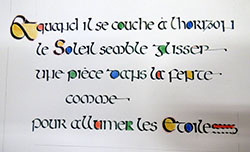 Quand il se couche à l'horizon
le Soleil semble glisser
une pièce dans la fente
comme
pour allumer les Etoiles